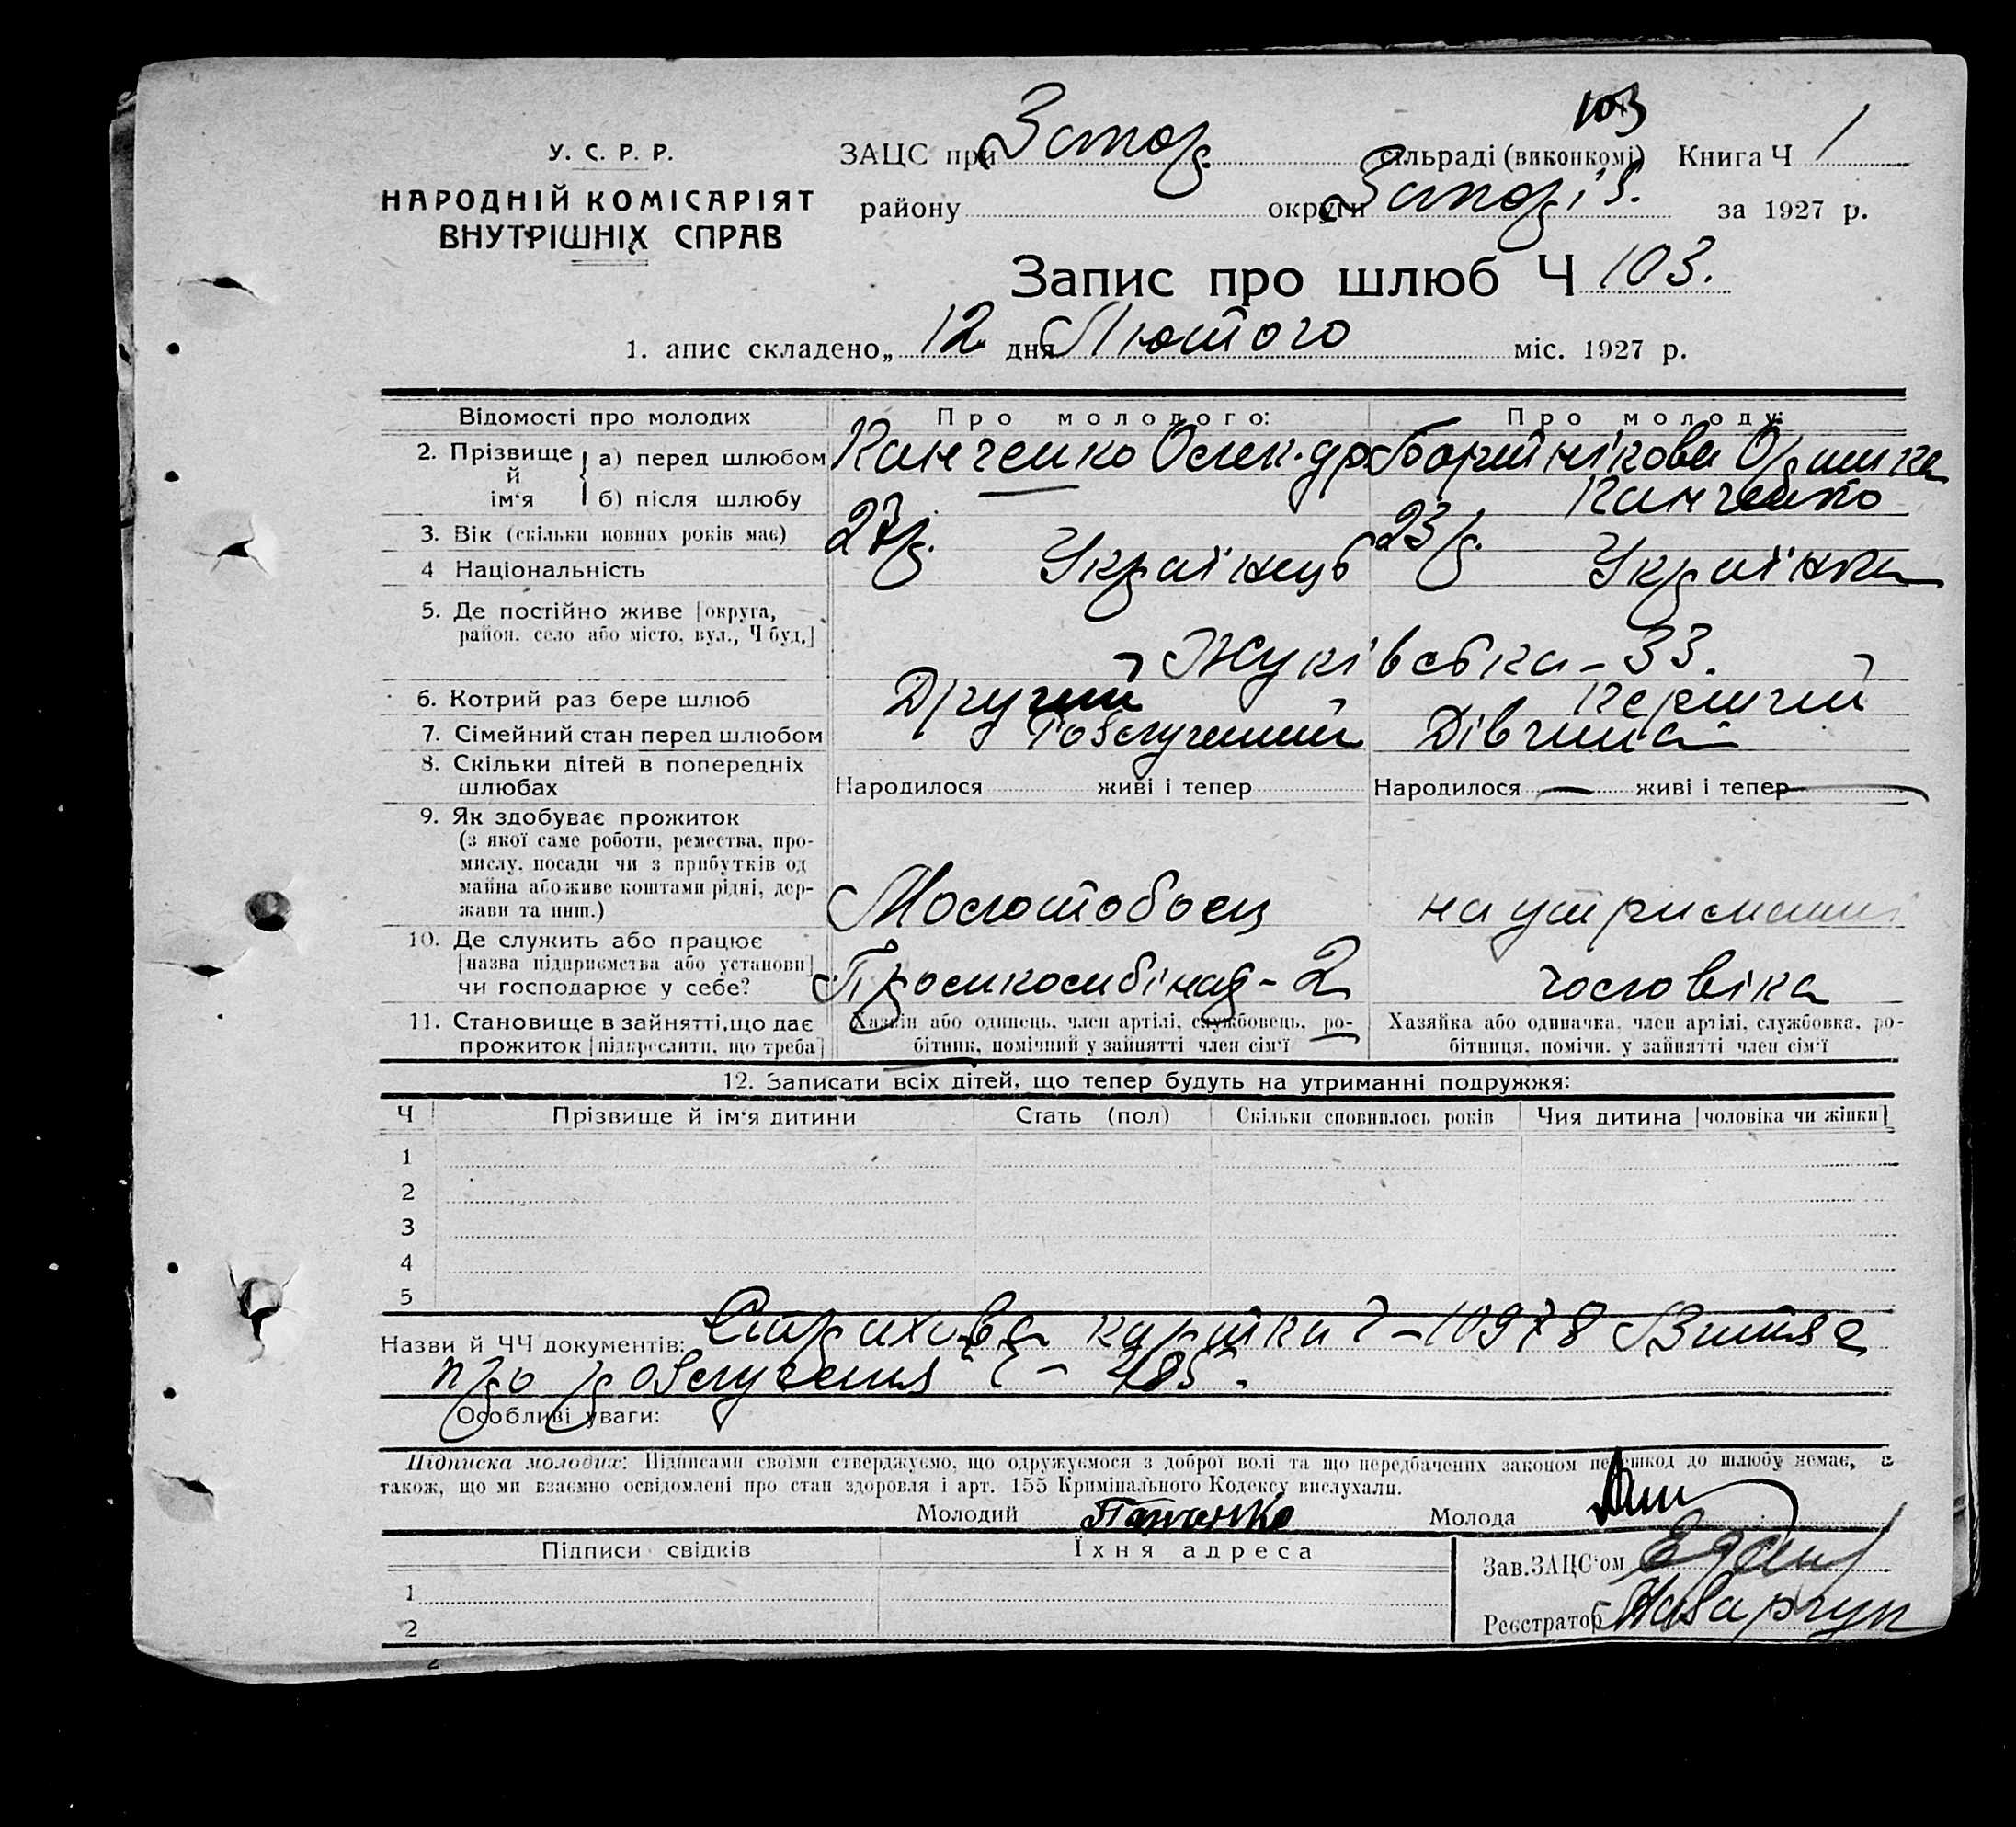 103
У. С. Р. Р.
НАРОДНІЙ КОМІСАРІЯТ
ВНУТРІШНІХ СПРАВ
ЗАЦС при Запор. сільраді (виконкомі) Книга Ч 1
району округи Запоріз. за 1927 р.
Запис про шлюб Ч 103.
1. апис складено „ 12 дня Лютого міс. 1927 р.
Відомості про молодих Про молодого: Про молоду:
2. Прізвище й ім'я а) перед шлюбом Панченко Олек-др Оришка
б) після шлюбу — Панченко
3. Вік (скільки повних років має) 27 р. 23 р.
4 Національність Українець Українка
5. Де постійно живе [округа,
район, село або місто, вул., Ч буд.] Жуківська - 33.
6. Котрий раз бере шлюб Другий Перший
7. Сімейний стан перед шлюбом Розлучений Дівчина
8. Скільки дітей в попередніх
шлюбах Народилося живі і тепер Народилося — живі і тепер —
9. Як здобуває прожиток
(з якої саме роботи, ремества, про-
мислу, посади чи з прибутків од
майна або живе коштами рідні, дер-
жави та инш.) Молотобоец на утриманні
10. Де служить або працює
[назва підприємства або установи]
чи господарює у себе? Промкомбінад - 2 чоловіка
11. Становище в зайнятті, що дає
прожиток [підкреслити, що треба]
Хазяїн або одинець, член артілі, службовець, ро-
бітник, помічний у зайнятті член сім'ї
Хазяйка або одиначка, член артілі, службовка, ро-
бітниця, помічн. у зайнятті член сім'ї
12. Записати всіх дітей, що тепер будуть на утриманні подружжя:
Ч Прізвище й ім'я дитини Стать (пол) Скільки сповнилось років Чия дитина [чоловіка чи жінки]
1
2
3
4
5
Назви й ЧЧ документів: Страхова картка Ч - 10978 Витяг
про розлучення Ч -
Особливі уваги:
Підписка молодих: Підписами своїми стверджуємо, що одружуємося з доброї волі та що передбачених законом перешкод до шлюбу немає, а
також, що ми взаємно освідомлені про стан здоровля і арт. 155 Кримінального Кодексу вислухали.
Молодий Панченко Молода
Підписи свідків Їхня адреса
Зав. ЗАЦС'ом
1
Реєстратор
2